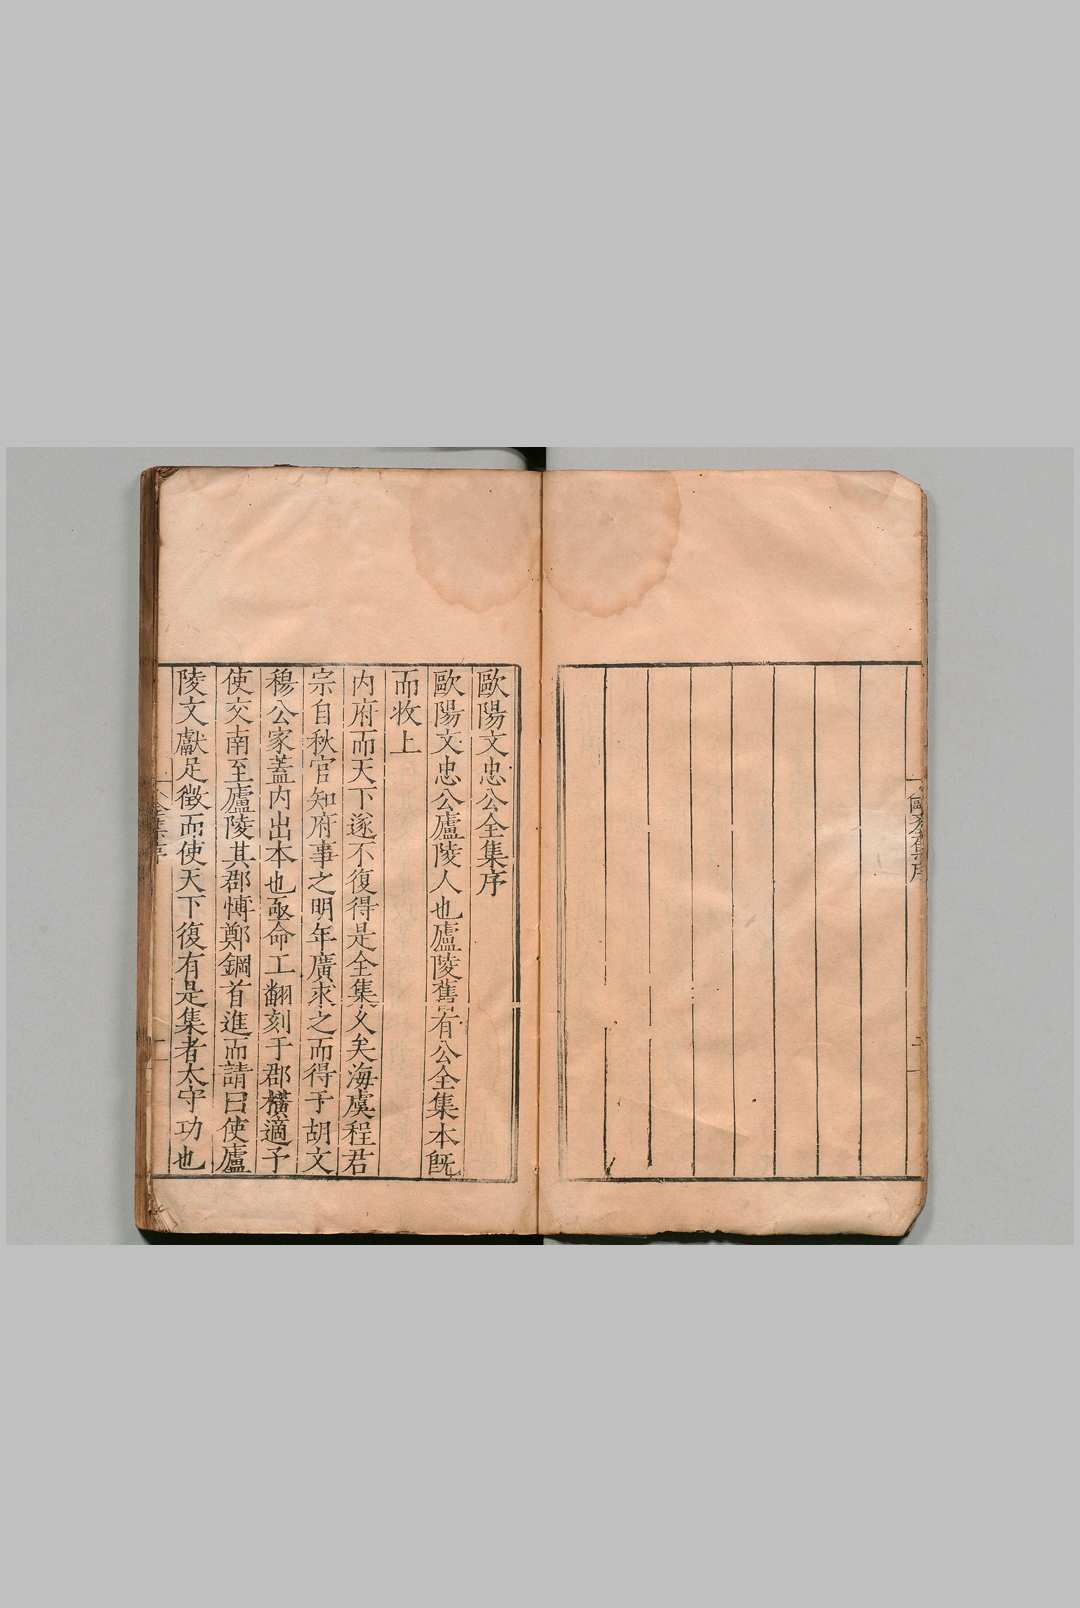 歐陽文忠公全集序
歐陽文忠公廬陵人也廬陵舊有公全集本既
而收上
内府而天下遂不復得是全集乆矣海虞程君
宗自秋官知府事之明年廣求之而得于胡文
穆公家蓋内出本也亟命工翻刻于郡横適予
使交南至廬陵其郡慱鄭鋼首進而請曰使廬
陵文獻足徴而使天下復有是集者太守功也